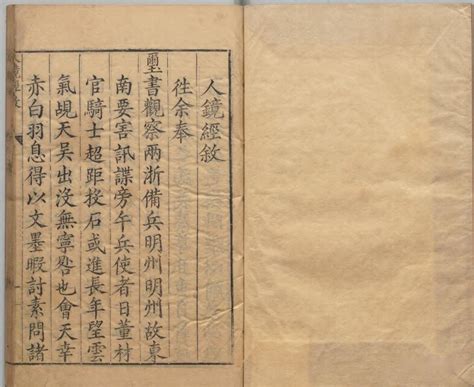 人鏡經敘
徃余奉
璽書觀察兩浙備兵明州明州故東
南要害訊諜旁午兵使者日董材
官騎士超距投石或進長年望雲
氣覘天吳出沒無寧晷也會天幸
赤白羽息得以文墨暇討素問諸